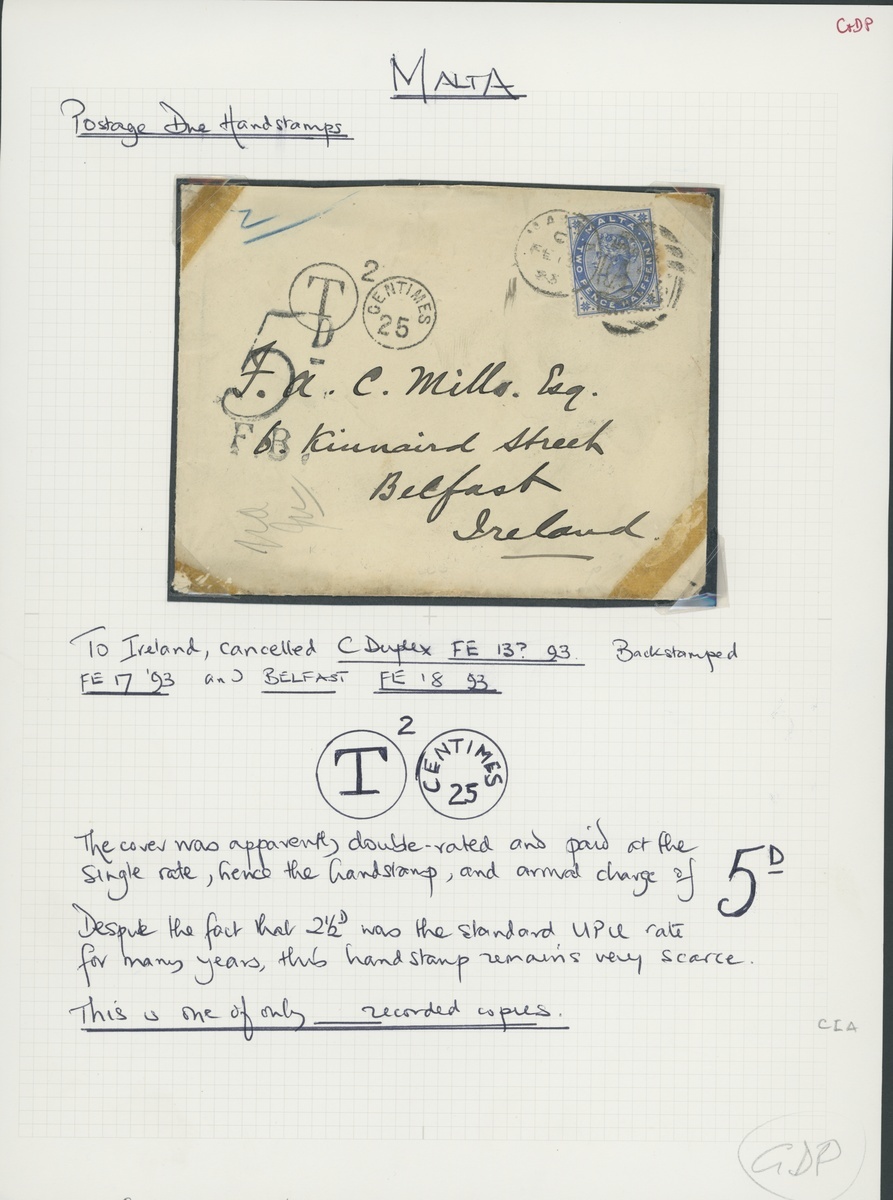 G+DP
MALTA
Postage Due Handstamps
2
T
2
CENTIMES
25
MALTA
TWO PENCE HALFPENNY
5D
F. A. C. Mills. Esq.
F.B.
6. Kinnaird Street
Belfast
Ireland.
To Ireland, cancelled C Duplex FE 13? 93. Backstamped
FE 17 '93 and BELFAST FE 18 93
T
2
CENTIMES
25
The cover was apparently double-rated and paid at the
single rate, hence the handstamp, and arrival charge of 5D
Despite the fact that 2½D was the standard UPU rate
for many years, this handstamp remains very scarce.
This is one of only ___ recorded copies.
CIA
GDP